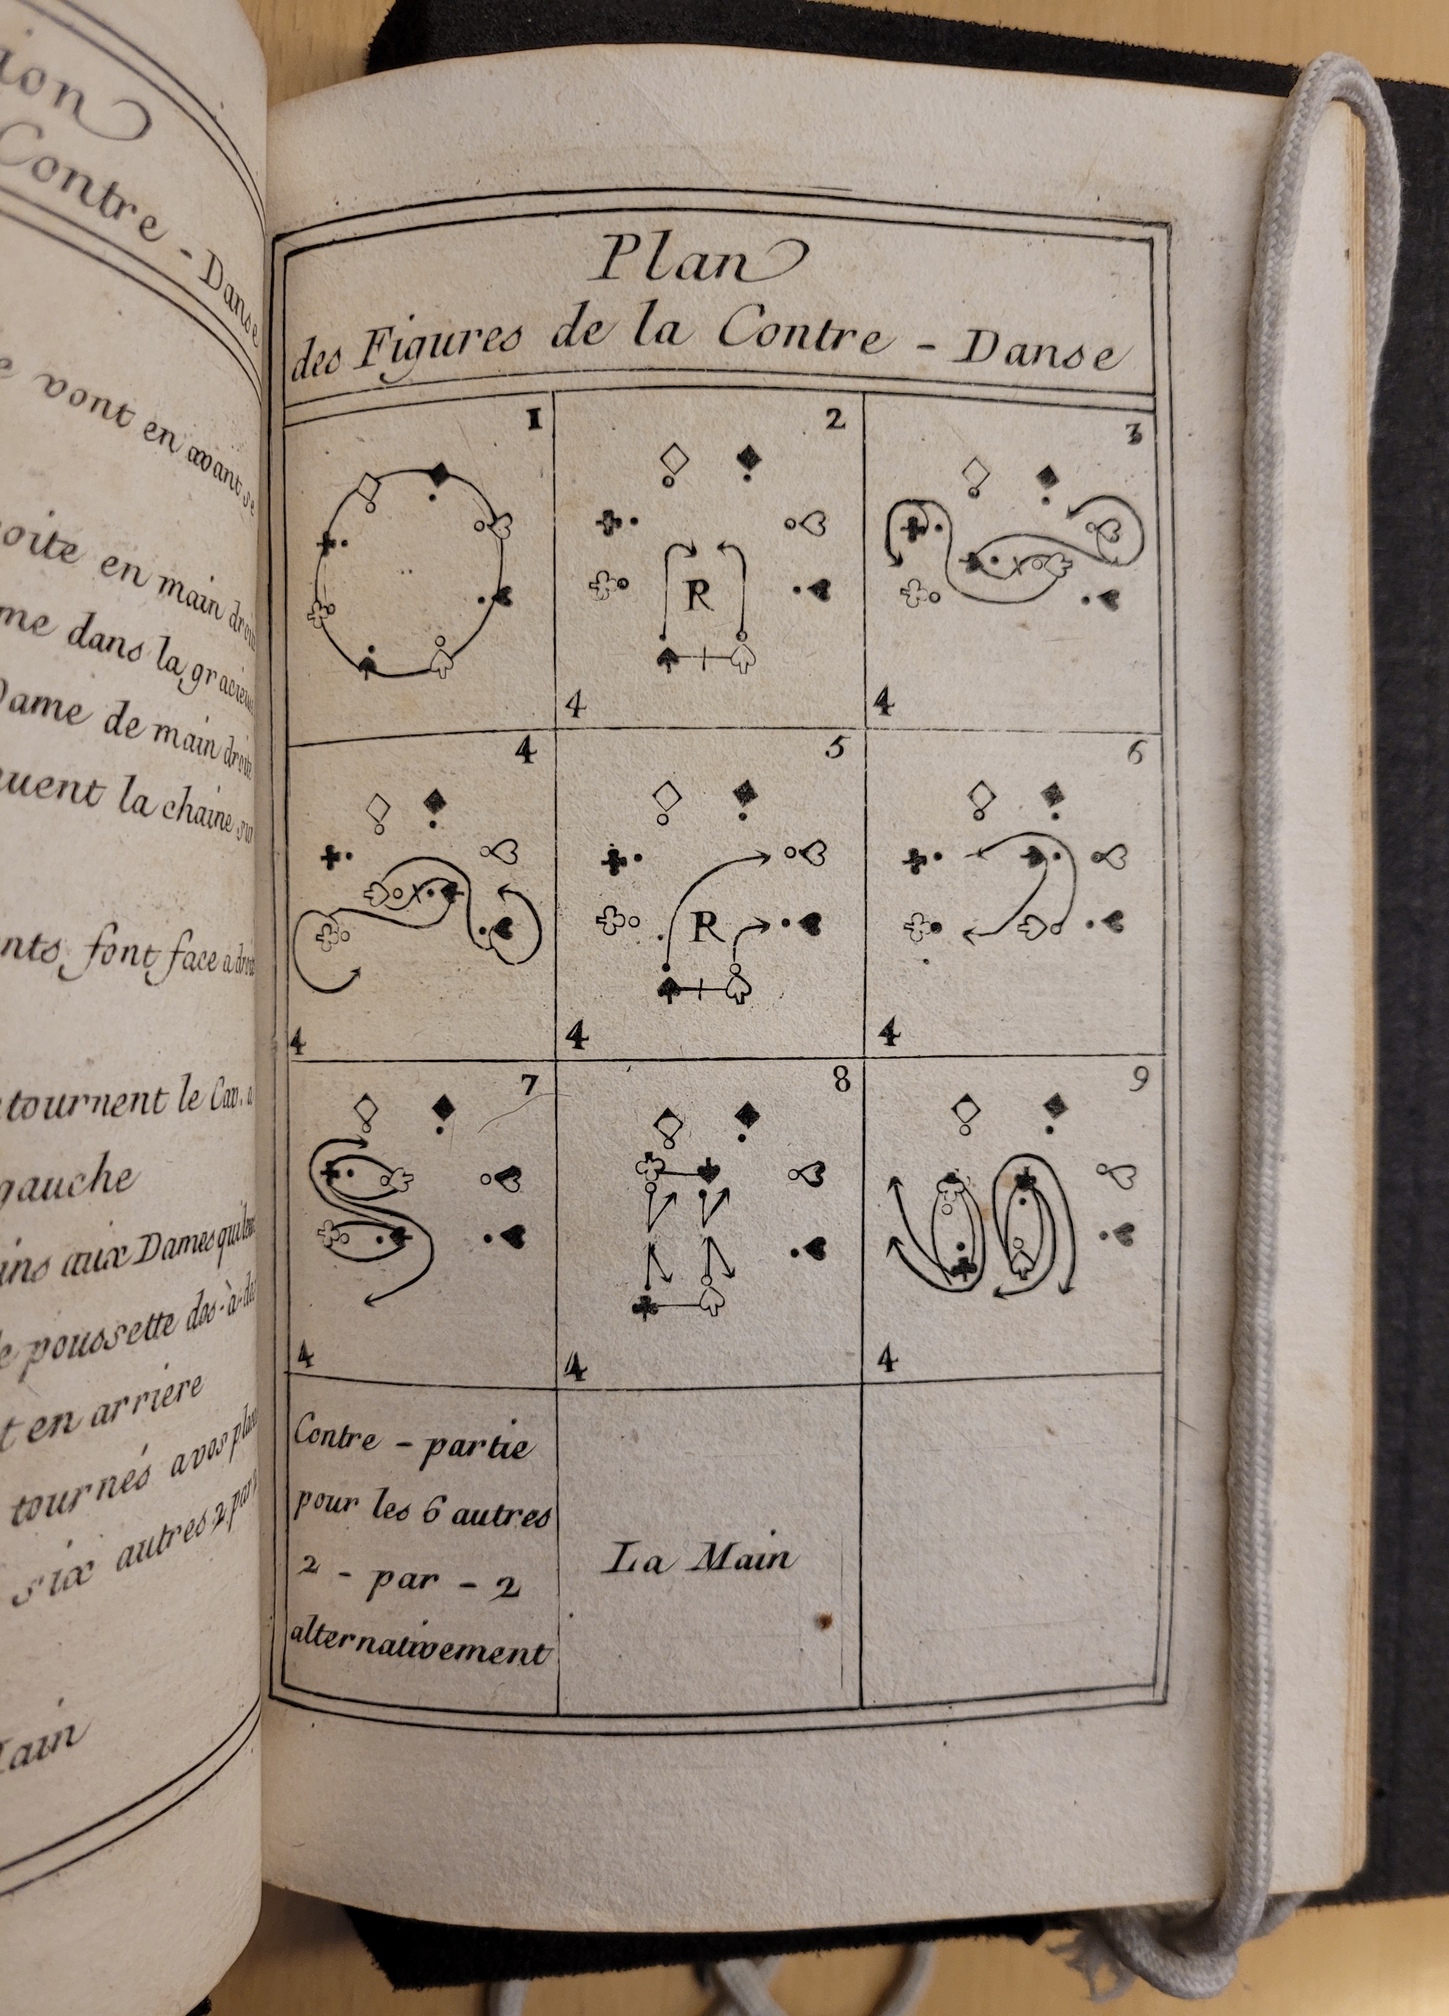 Contre - Danse
vont en avant se
en main droite
me dans la gracieuse
Dame de main droite
la chaine sur
font face a droite
tournent le Cav. a
gauche
aux Dames qui
poussette dos-à-dos
en arriere
tournés a vos places
six autres 2 par
Plan
des Figures de la Contre - Danse
1
2
R
4
3
4
4
4
5
R
4
6
4
7
4
8
4
9
4
Contre - partie
pour les 6 autres
2 - par - 2
alternativement
La Main